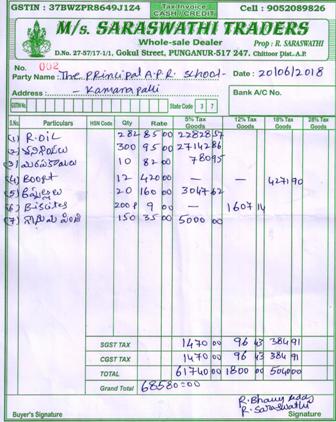 GSTIN : 37BWZPR8649J1Z4 Tax Invoice CASH / CREDIT Cell : 9052089826
M/s. SARASWATHI TRADERS
Whole-sale Dealer Prop : R. SARASWATHI
D.No. 27-57/17-1/1, Gokul Street, PUNGANUR-517 247. Chittoor Dist.-A.P.
No. 002 Date : 20/06/2018
Party Name : The Principal A.P.R. School -
Address : - Kamarapalli Bank A/C No.
GSTIN No. State Code 3 7
S.No. Particulars HSN Code Qty Rate 5% Tax Goods 12% Tax Goods 18% Tax Goods
(1) R.OIL 282 85 00 22828 57
(2) 300 95 00 27142 86
(3) 10 82 00 780 95
(4) Boost 12 420 00 — — 4271 90
(5) 20 160 00 3047 62
(6) Biscites 200 P 9 00 — 1607 14
(7) 150 35 00 5000 00
SGST TAX 1470 00 96 43 384 91
CGST TAX 1470 00 96 43 384 91
TOTAL 61740 00 1800 00 5040 00
Grand Total 68580=00
R. Bhanu
R. Saraswathi
Buyer's Signature Signature